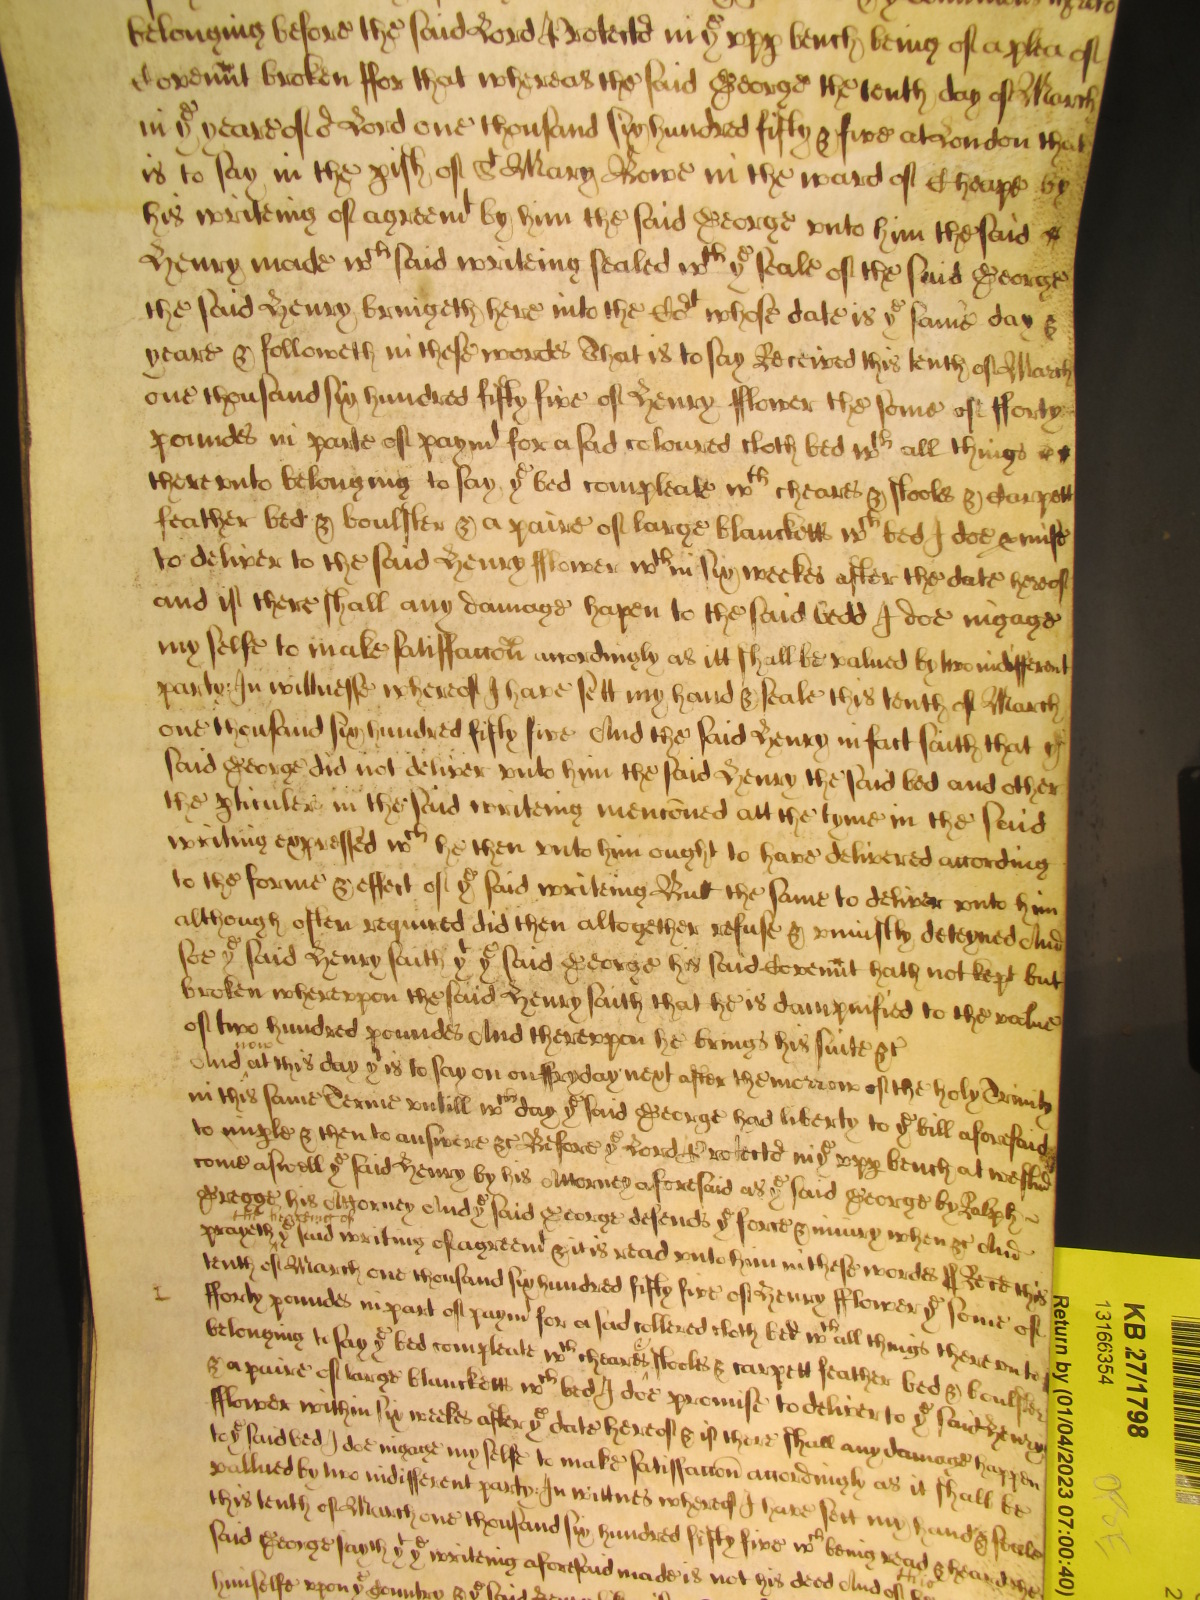 belonging before the said Lord Protectd in ye vpp bench being of a plea of
Covent broken ffor that whereas the said George the tenth day of March
in ye yeare of or Lord one thousand six hundred fifty & five at London that
is to say in the pish of St Mary Bowe in the ward of Cheape by
his writeing of agreemt by him the said George vnto him the said
Henry made wch said writeing sealed wth ye seale of the said George
the said Henry bringeth here into the Cort whose date is ye same day &
yeare & followeth in these wordes That is to say Received this tenth of March
one thousand six hundred fifty five of Henry fflower the some of fforty
poundes in parte of paymt for a sad coloured cloth bed wth all things
therevnto belonging to say ye bed compleate wth cheares & stooles & Carpett
feather bed & boulster & a paire of large blancketts wch bed I doe pmise
to deliver to the said Henry fflower wthin six weekes after the date hereof
and if there shall any damage hapen to the said bedd I doe ingage
my selfe to make satisfaccon accordingly as itt shall be valued by two indifferent
party: In wittnesse whereof I have sett my hand & seale this tenth of March
one thousand six hundred fifty five And the said Henry in fact saith that ye
said George did not deliver vnto him the said Henry the said bed and other
the pticulers in the said writeing menconed att the tyme in the said
writing expressed wch he then vnto him ought to have delivered according
to the forme & effect of ye said writeing But the same to deliver vnto him
although often required did then altogether refuse & vniustly deteyned And
soe ye said Henry saith yt ye said George his said Covent hath not kept but
broken wherevpon the said Henry saith that he is dampnified to the value
of two hundred poundes And therevpon he brings his suite &c
And now at this day yt is to say on on ffryday next after the morrow of the holy Trinity
in this same Terme vntill wch day ye said George had liberty to ye bill aforesaid
to imple & then to answere &c Before ye Lord Protectd in ye vpp bench at westmr
come aswell ye said Henry by his Attorney aforesaid as ye said George by Ralph
Gregge his Attorney And ye said George defends ye force & iniury when &c And
prayeth the heareing of ye said writing of agreemt & it is read vnto him in these wordes ss Recd this
tenth of March one thousand six hundred fifty five of Henry fflower ye some of
fforty poundes in part of paymt for a sad collered cloth bed wth all things therevnto
belonging to say ye bed compleate wth cheares stooles & carpett feather bed & boulster
& a paire of large blancketts wch bed I doe promise to deliver to ye said Henry
fflower within six weekes after ye date hereof & if there shall any damage happen
to ye said bed I doe ingage my selfe to make satisfaccon accordingly as it shall be
vallued by two indifferent party: In wittnes whereof I have sett my hand & seale
this tenth of March one thousand six hundred fifty five wch being read & heard the
said George sayth yt ye writeing aforesaid made is not his deed And of this
himselfe vpon ye Country & ye said Henry
KB 27/1798
13166354
Return by (01/04/2023 07:00:40)